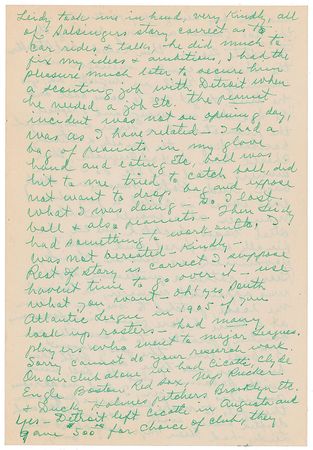 Leidy took me in hand, very kindly, all
of Salsingers story correct as to
car rides & talks, he did much to
fix my ideas & ambitions, I had the
pleasure much later to secure him
a scouting job with Detroit when
he needed a job Etc. the peanut
incident was not on opening day,
was as I have related – I had a
bag of peanuts in my glove
hand and eating Etc, ball was
hit to me, tried to catch ball, did
not want to drop bag and expose
what I was doing – So I lost
ball & also peanuts – Then Leidy
had something to work onto, I
was not berated – Kindly –
Rest of story is correct I suppose
havent time to go over it – use
what you want – oh! yes South
Atlantic League in 1905 if you
look up rosters – had many
players who went to major Leagues.
Sorry cannot do your research work.
On our club alone we had Cicotte, Clyde
Engle Boston Red Sox, Nap Rucker.
& Ducky Holmes pitchers Brooklyn Etc.
yes – Detroit left Cicotte in Augusta and
gave $500 for choice of club, they